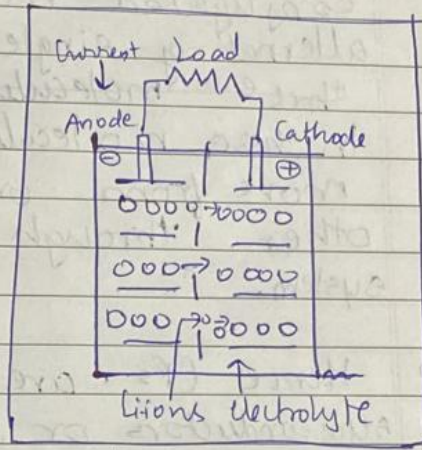 Current Load
Anode Cathode
⊖ ⊕
Li ions electrolyte